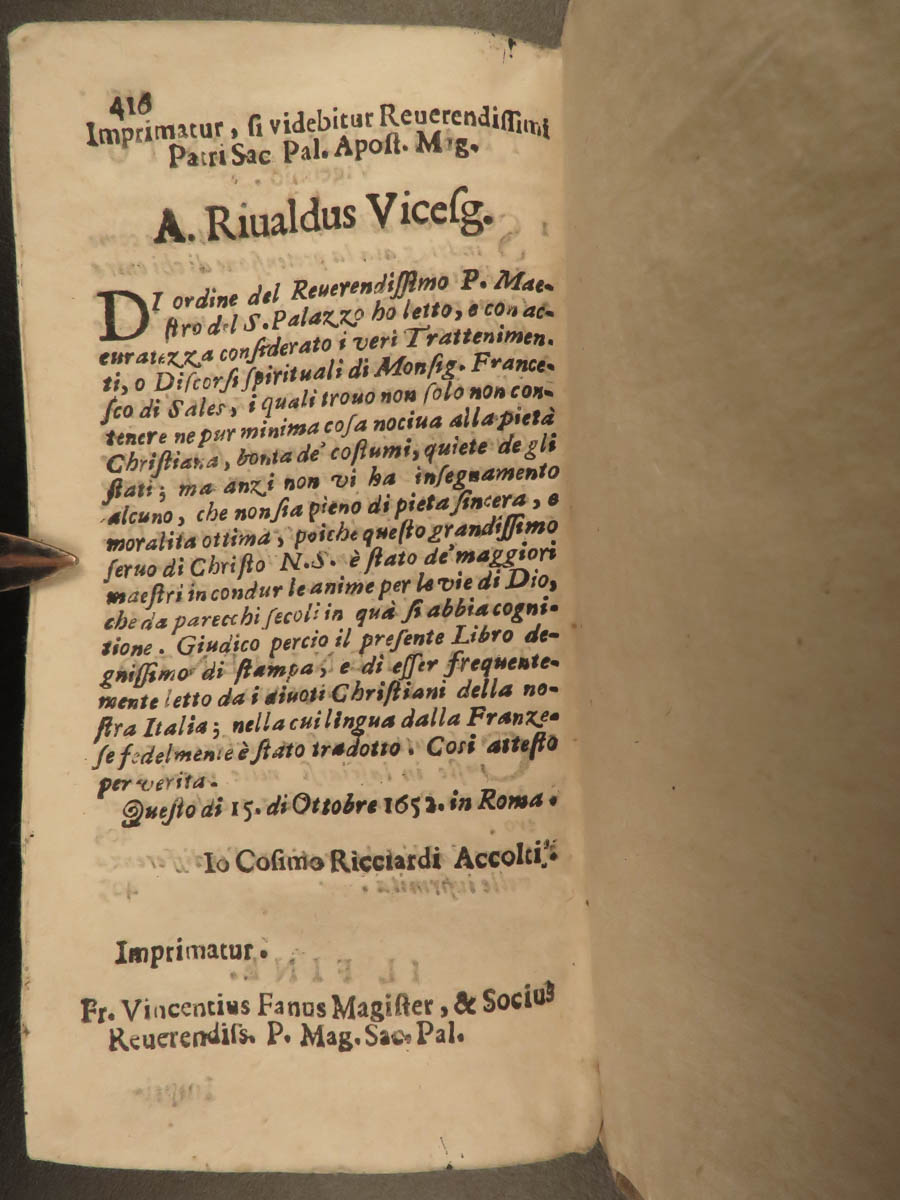 416
Imprimatur, ſi videbitur Reuerendiſſimi
Patri Sac Pal. Apoſt. Mag.
A. Riualdus Viceſg.
DI ordine del Reuerendiſſimo P. Mae-
ſtro del S. Palazzo ho letto, e con ac-
curatezza conſiderato i veri Trattenimen.
ti, o Diſcorſi ſpirituali di Monſig. France-
ſco di Sales, i quali trouo non ſolo non con-
tenere ne pur minima coſa nociua alla pietà
Chriſtiana, bonta de' coſtumi, quiete de gli
ſtati; ma anzi non vi ha inſegnamento
alcuno, che non ſia pieno di pieta ſincera, e
moralita ottima, poiche queſto grandiſſimo
ſeruo di Chriſto N. S. è ſtato de' maggiori
maeſtri in condur le anime per le vie di Dio,
che da parecchi ſecoli in quà ſi abbia cogni-
tione. Giudico percio il preſente Libro de-
gniſſimo di ſtampa, e di eſſer frequente-
mente letto da i diuoti Chriſtiani della no-
ſtra Italia; nella cui lingua dalla Franze-
ſe fedelmente è ſtato tradotto. Cosi atteſto
per verita.
Queſto di 15. di Ottobre 1652. in Roma.
Io Coſimo Ricciardi Accolti.
Imprimatur.
Fr. Vincentius Fanus Magiſter, & Socius
Reuerendiſs. P. Mag. Sac. Pal.